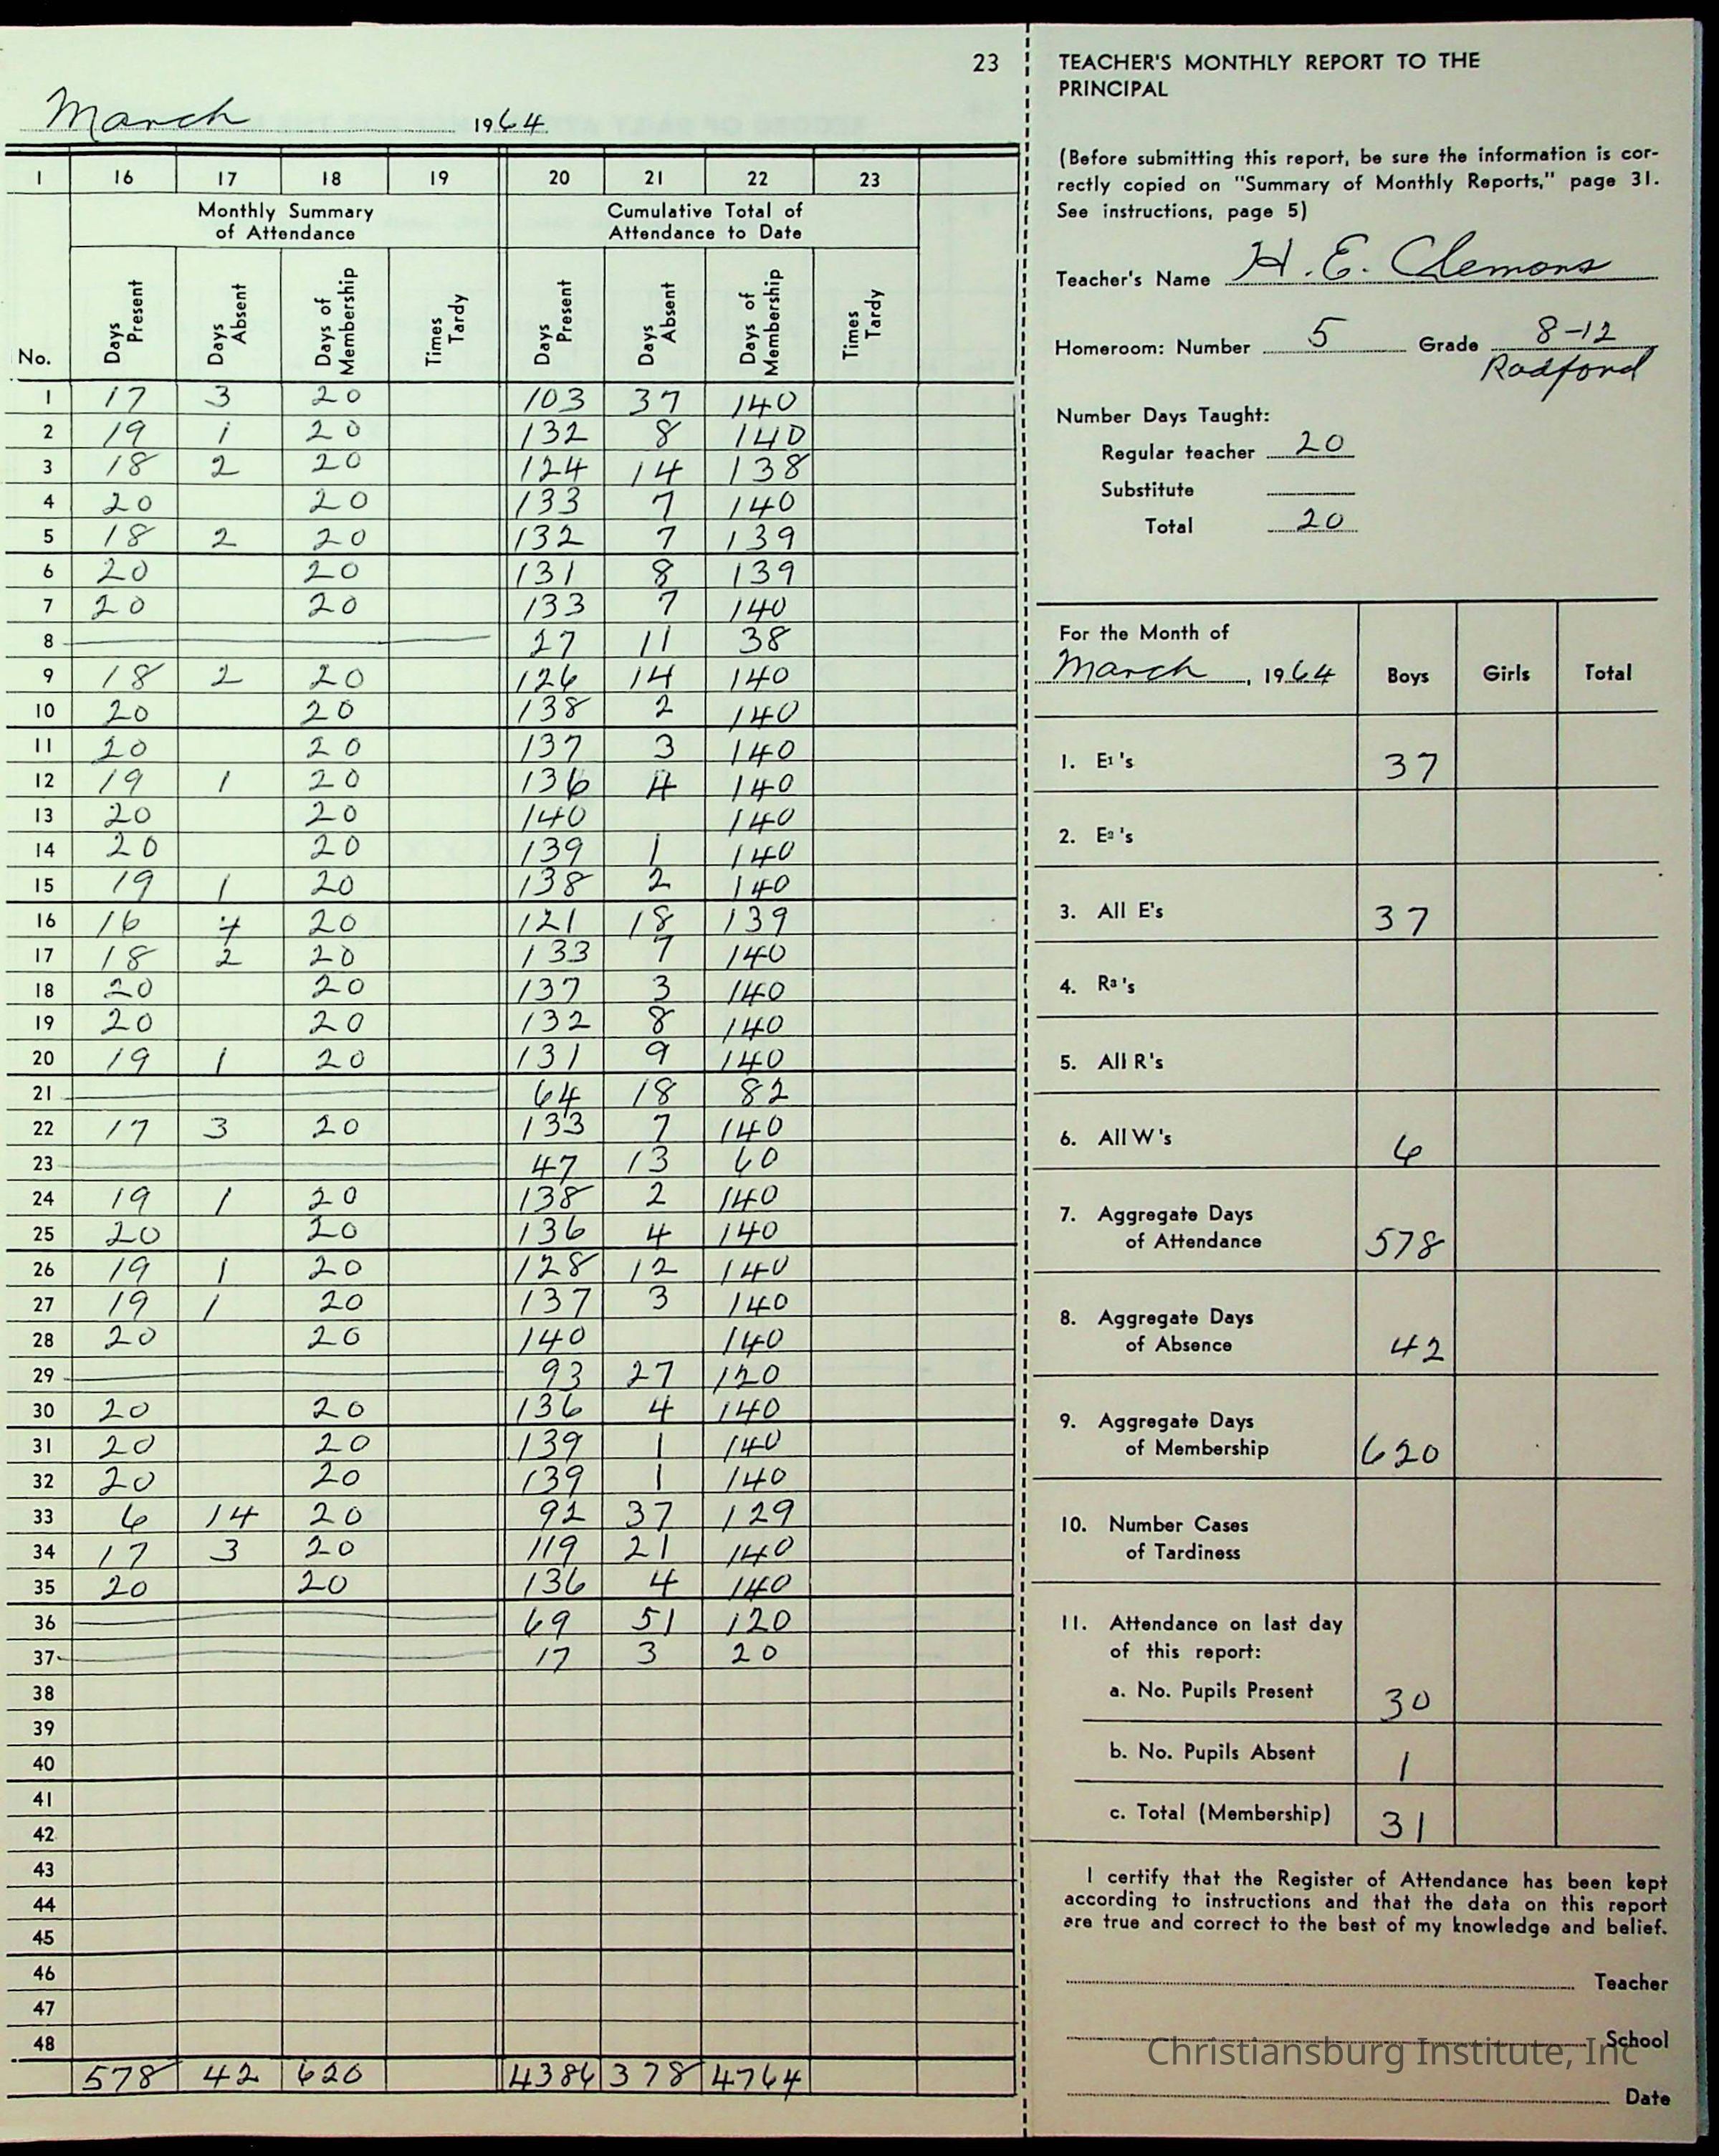 23
March 1964
1 16 17 18 19 20 21 22 23
Monthly Summary of Attendance Cumulative Total of Attendance to Date
No. Days Present Days Absent Days of Membership Times Tardy Days Present Days Absent Days of Membership Times Tardy
1 17 3 20 103 37 140
2 19 1 20 132 8 140
3 18 2 20 124 14 138
4 20 20 133 7 140
5 18 2 20 132 7 139
6 20 20 131 8 139
7 20 20 133 7 140
8 27 11 38
9 18 2 20 126 14 140
10 20 20 138 2 140
11 20 20 137 3 140
12 19 1 20 136 4 140
13 20 20 140 140
14 20 20 139 1 140
15 19 1 20 138 2 140
16 16 4 20 121 18 139
17 18 2 20 133 7 140
18 20 20 137 3 140
19 20 20 132 8 140
20 19 1 20 131 9 140
21 64 18 82
22 17 3 20 133 7 140
23 47 13 60
24 19 1 20 138 2 140
25 20 20 136 4 140
26 19 1 20 128 12 140
27 19 1 20 137 3 140
28 20 20 140 140
29 93 27 120
30 20 20 136 4 140
31 20 20 139 1 140
32 20 20 139 1 140
33 6 14 20 92 37 129
34 17 3 20 119 21 140
35 20 20 136 4 140
36 69 51 120
37 17 3 20
38
39
40
41
42
43
44
45
46
47
48
578 42 620 4386 378 4764
TEACHER'S MONTHLY REPORT TO THE
PRINCIPAL
(Before submitting this report, be sure the information is cor-
rectly copied on "Summary of Monthly Reports," page 31.
See instructions, page 5)
Teacher's Name H. E. Clemons
Homeroom: Number 5 Grade 8-12
Radford
Number Days Taught:
Regular teacher 20
Substitute
Total 20
For the Month of
March, 1964 Boys Girls Total
1. E1's 37
2. E2's
3. All E's 37
4. R3's
5. All R's
6. All W's 6
7. Aggregate Days
of Attendance 578
8. Aggregate Days
of Absence 42
9. Aggregate Days
of Membership 620
10. Number Cases
of Tardiness
11. Attendance on last day
of this report:
a. No. Pupils Present 30
b. No. Pupils Absent 1
c. Total (Membership) 31
I certify that the Register of Attendance has been kept
according to instructions and that the data on this report
are true and correct to the best of my knowledge and belief.
Teacher
School
Christiansburg Institute, Inc
Date